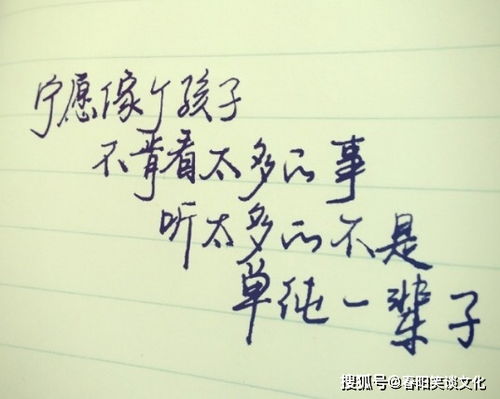 宁愿像个孩子
不肯看太多的事
听太多的不是
单纯一辈子
搜狐号@春阳笑谈文化